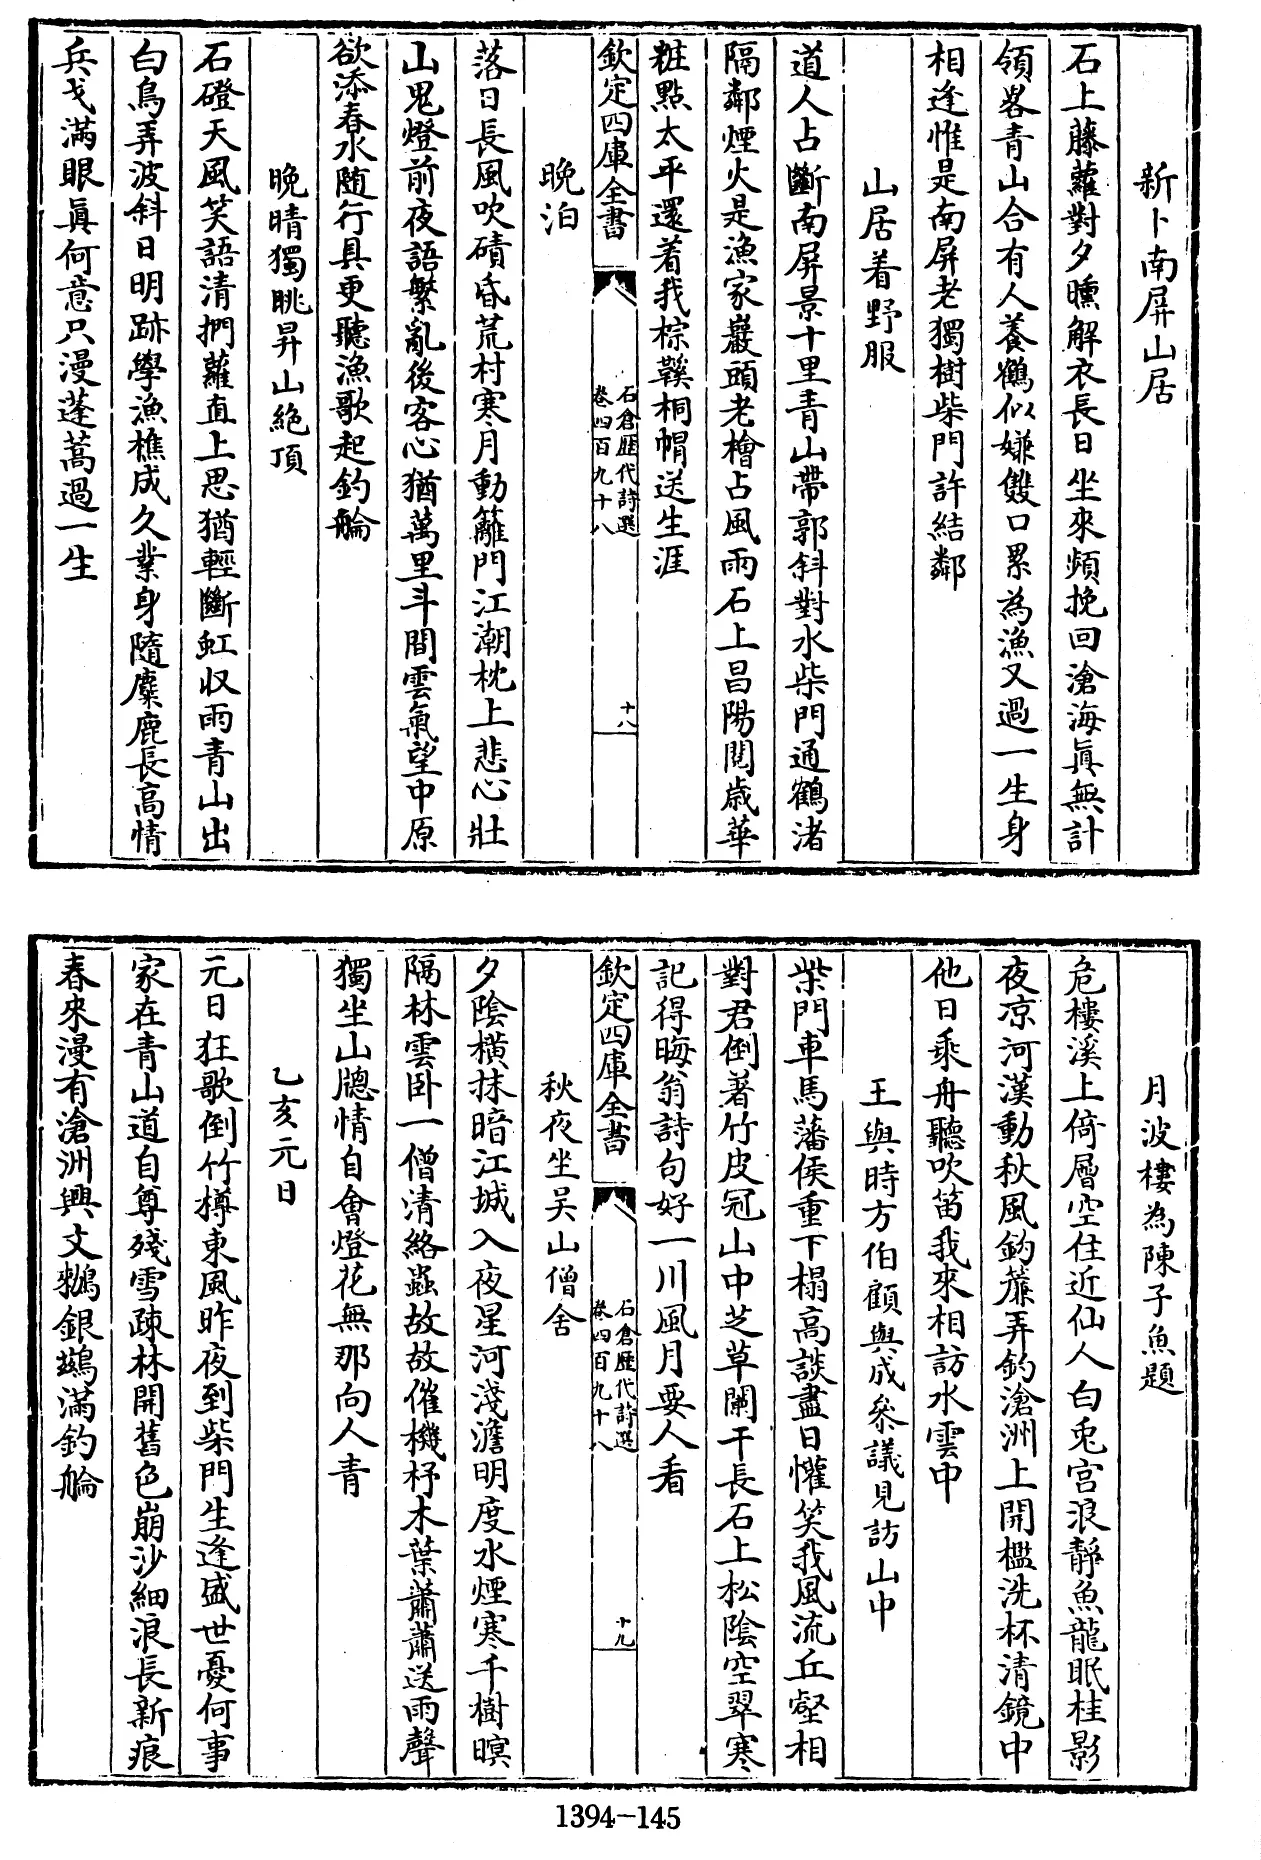 新卜南屏山居
石上藤蘿對夕曛解衣長日坐來頻挽回滄海真無計
領畧青山合有人養鶴似嫌雙口累為漁又過一生身
相逢惟是南屏老獨樹柴門許結鄰
山居着野服
道人占斷南屏景十里青山帶郭斜對水柴門通鶴渚
隔鄰煙火是漁家巖頭老檜占風雨石上昌陽閱歳華
粧點太平還着我棕鞵桐㡌送生涯
欽定四庫全書
石倉歷代詩選
卷四百九十八
十八
晚泊
落日長風吹磧昏荒村寒月動籬門江潮枕上悲心壯
山鬼燈前夜語繁亂後客心猶萬里斗間雲氣望中原
欲添春水随行具更聽漁歌起釣艑
晚晴獨眺昇山絶頂
石磴天風笑語清捫蘿直上思猶輕斷虹収雨青山出
白鳥弄波斜日明跡學漁樵成久業身隨麋鹿長高情
兵戈滿眼真何意只漫蓬蒿過一生
月波樓為陳子魚題
危樓溪上倚層空住近仙人白兎宫浪靜魚龍眠桂影
夜凉河漢動秋風鈎簾弄釣滄洲上開檻洗杯清鏡中
他日乘舟聽吹笛我來相訪水雲中
王與時方伯顧與成叅議見訪山中
柴門車馬藩侯重下榻高談盡日懽笑我風流丘壑相
對君倒著竹皮冠山中芝草闌干長石上松陰空翠寒
記得晦翁詩句好一川風月要人看
欽定四庫全書
石倉歷代詩選
卷四百九十八
十九
秋夜坐吴山僧舍
夕陰横抹暗江城入夜星河淺澹明度水煙寒千樹暝
隔林雲卧一僧清絡蟲故故催機杼木葉蕭蕭送雨聲
獨坐山牎情自會燈花無那向人青
乙亥元日
元日狂歌倒竹樽東風昨夜到柴門生逢盛世憂何事
家在青山道自尊殘雪疎林開舊色崩沙細浪長新痕
春來漫有滄洲興文鷁銀鷀滿釣艑
1394-145